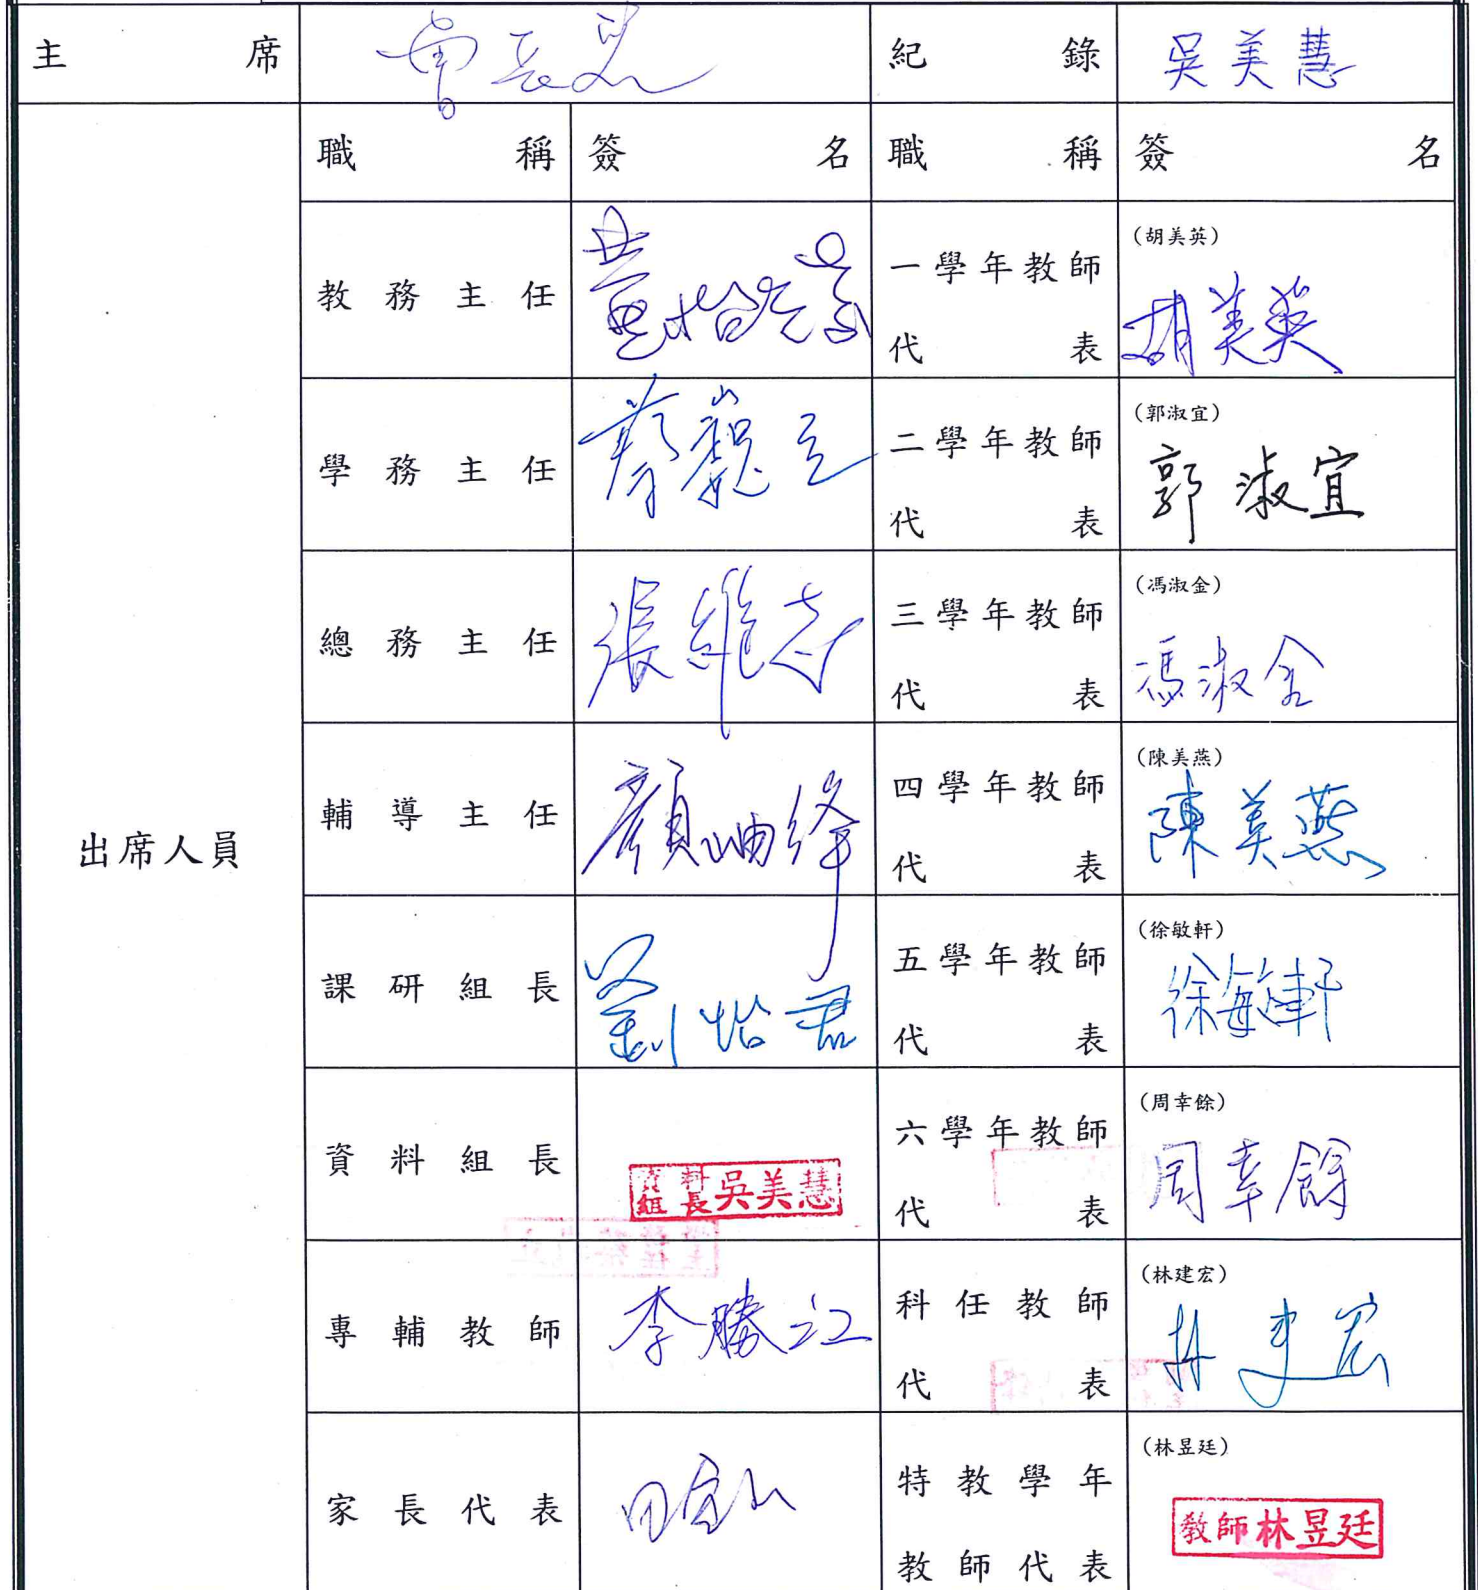 主席 紀錄 吳美慧
職稱 簽名 職稱 簽名
出席人員
教務主任 一學年教師代表 (胡美英) 胡美英
學務主任 蔡巍 二學年教師代表 (郭淑宜) 郭淑宜
總務主任 張維志 三學年教師代表 (馮淑金) 馮淑金
輔導主任 顏岫峰 四學年教師代表 (陳美燕) 陳美燕
課研組長 劉怡君 五學年教師代表 (徐敏軒) 徐敏軒
資料組長 資料組長吳美慧 六學年教師代表 (周幸餘) 周幸餘
專輔教師 李勝江 科任教師代表 (林建宏) 林建宏
家長代表 特教學年教師代表 (林昱廷) 教師林昱廷